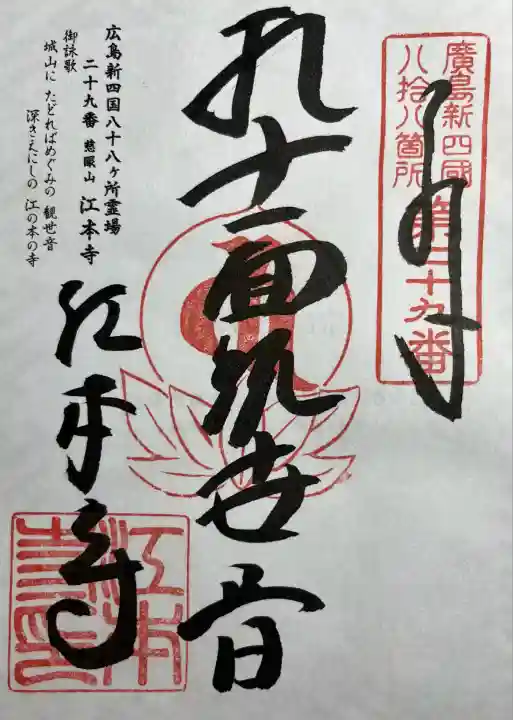 廣島新四國
八拾八箇所第二十九番
十一面観世音
広島新四国八十八ヶ所霊場
二十九番 慈眼山 江本寺
御詠歌
城山に たどればめぐみの 観世音
深きえにしの 江の本の寺
江本寺
江本